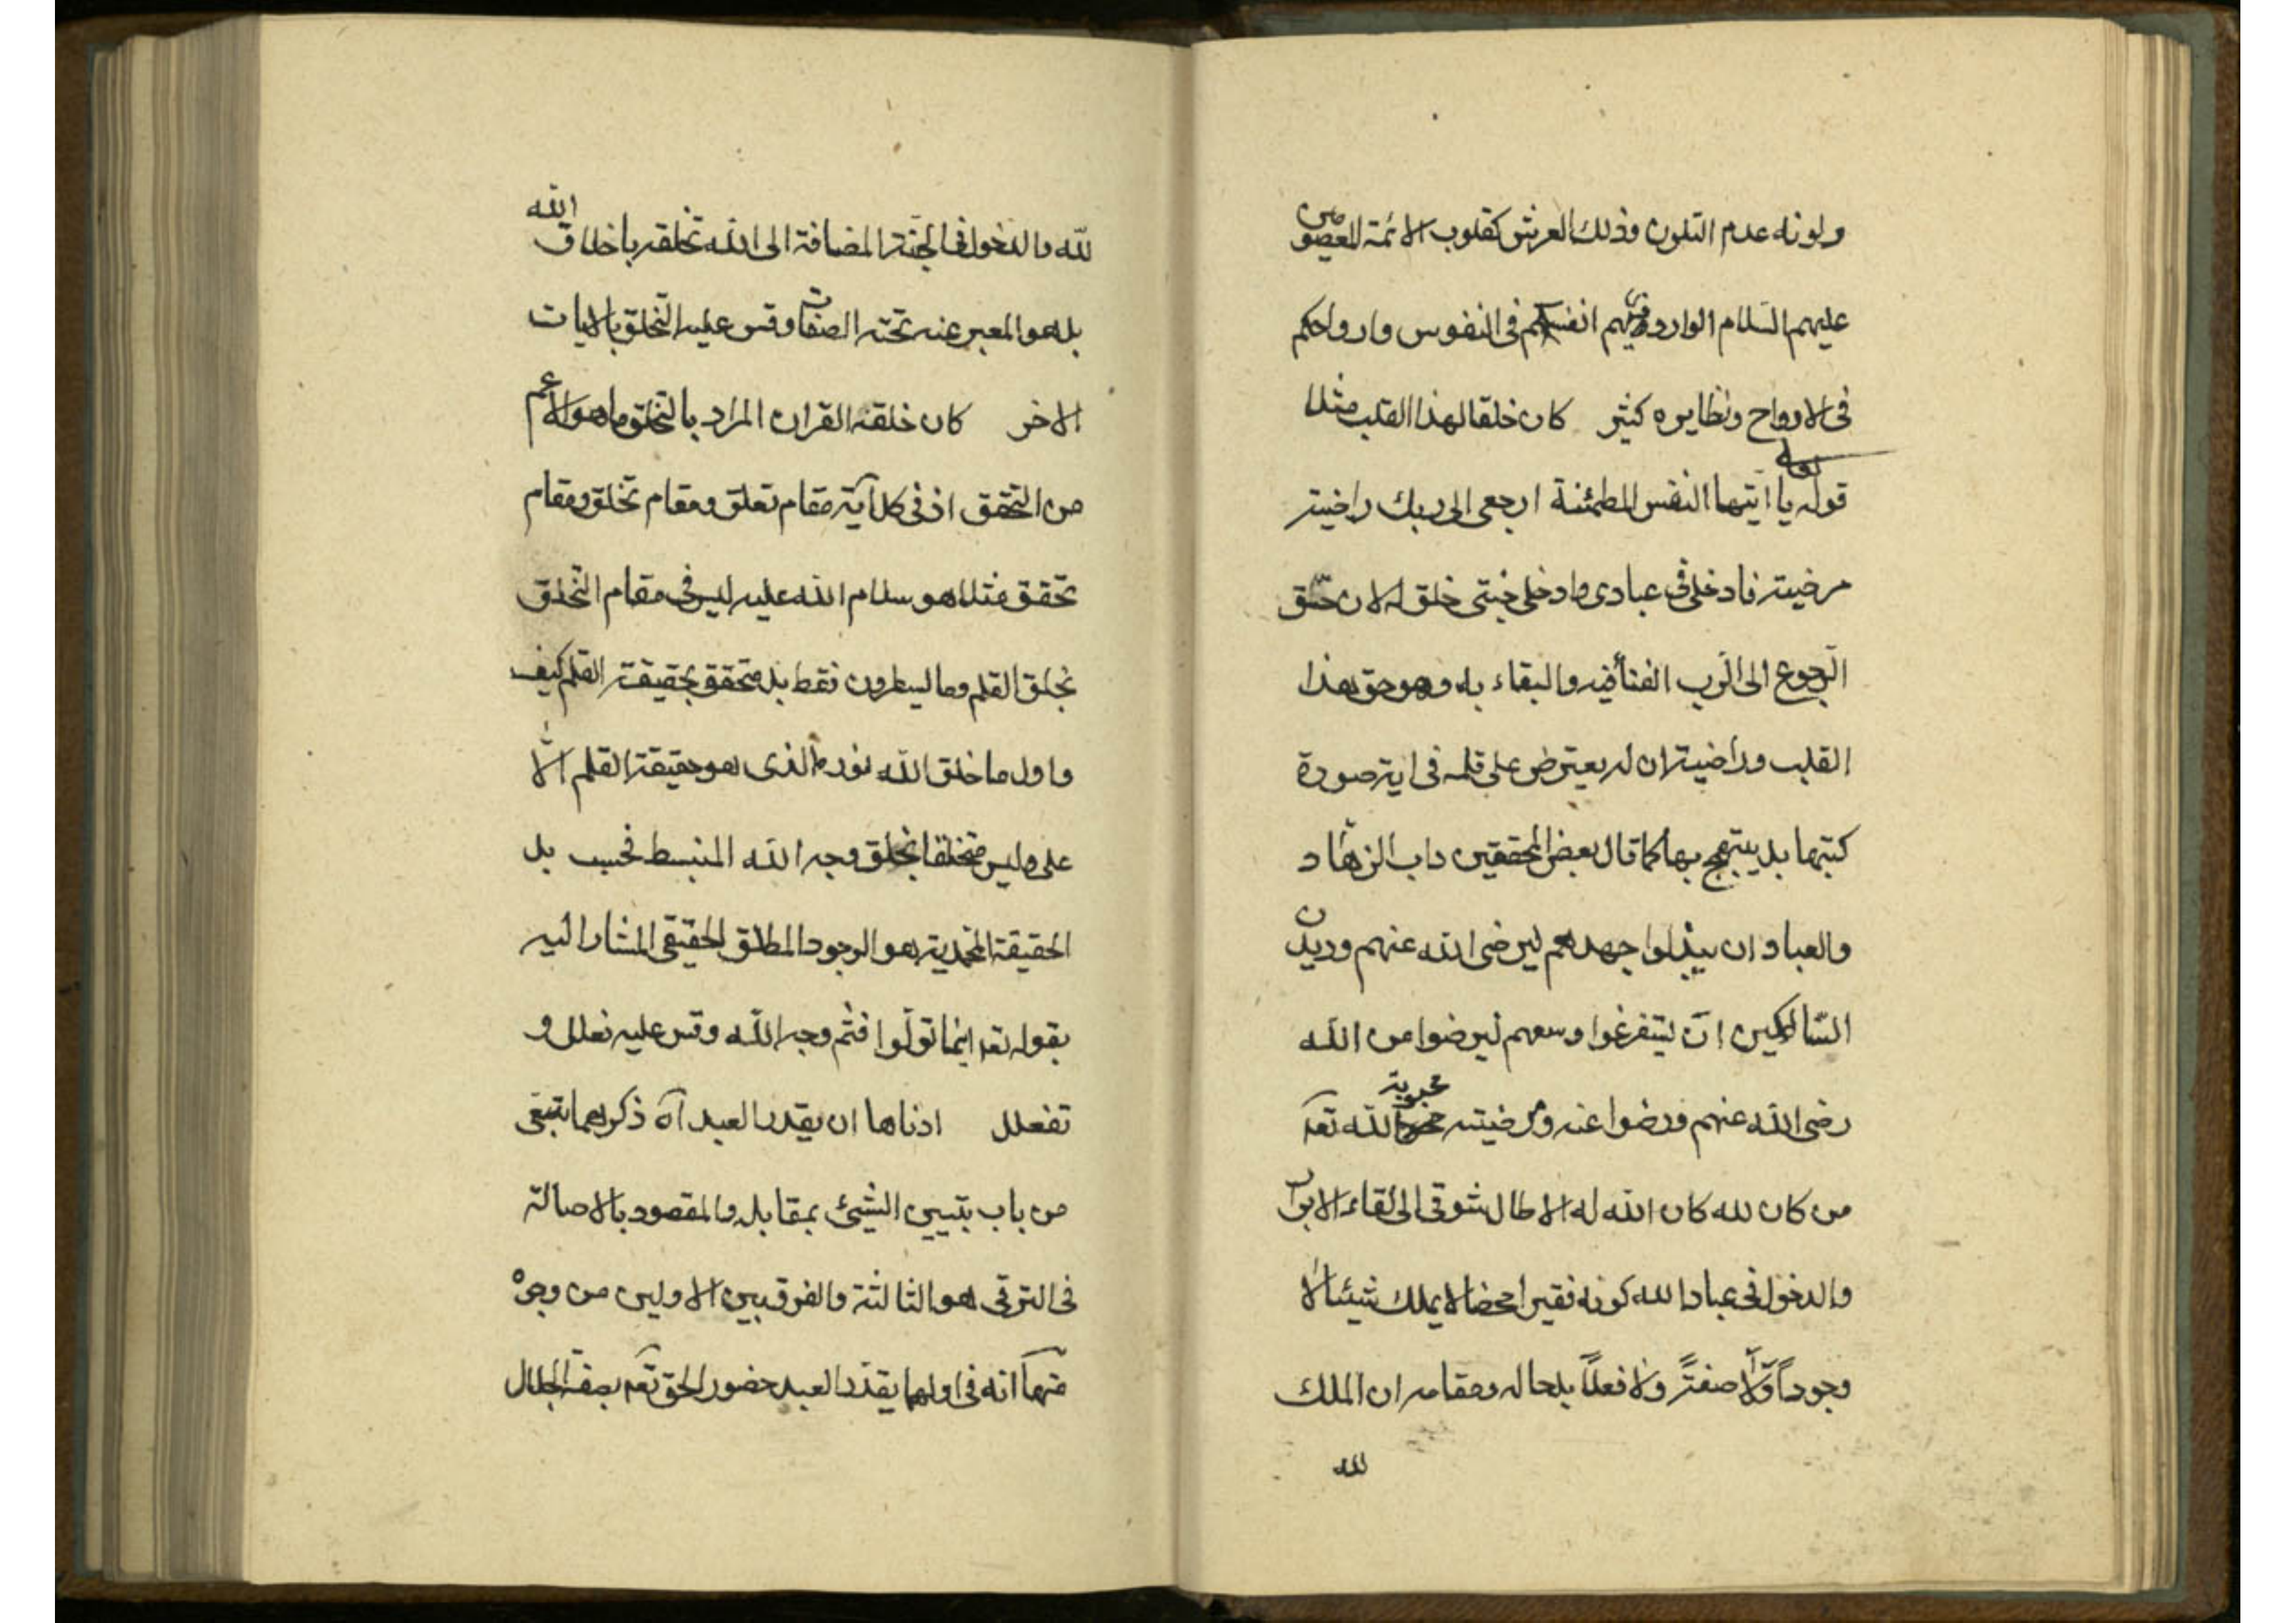 ولونه عدم التلون وذلك العرش كقلوب الائمة المعصومين
عليهم السلام الوارد فيهم انفسكم فى النفوس وارواحكم
فى الارواح ونظايره كثير كان خلقا لهذا القلب مثلا
قوله يا ايتها النفس المطمئنة ارجعى الى ربك راضية
مرضية فادخلى فى عبادى وادخلى جنتى خلق له لان حقّ
الرّجوع الى الرّب الفناء فيه والبقاء به وهو حق هذا
القلب وراضية ان لم يعترض على قلمه فى اية صورة
كتبها بل يبتهج بها كما قال بعض المحققين داب الزهّاد
والعباد ان يبذلوا جهدهم ليرضى الله عنهم وديدن
السّالكين انّ يتفرغوا وسعهم ليرضوا من الله
رضى الله عنهم ورضوا عنه ومرضيته محبوبية الله تعه
من كان لله كان الله له الا طال شوقى الى لقاء الابرار
والدخول فى عباد الله كونه فقيرا محضا لا يملك شيئا لا
وجوداً وّلا صفتً ولا فعلاً بلحاله ومقامه ان الملك
لله
لله والدخول فى الجنة المضافة الى الله تخلقه باخلاق الله
بل هو المعبر عنه بجنة الصفات وقس عليه التخلق بالايات
الاخر كان خلقه القران المراد بالتخلق ما هو الاعم
من التحقق اذ فى كل آية مقام تعلق ومقام تخلق ومقام
تحقق فمثلا هو سلام الله عليه ليس فى مقام التخلق
بخلق القلم وما يسطرون فقط بل متحقق بحقيقة القلم كيف
واول ما خلق الله نوره الذى هو حقيقة القلم الا
على وليس متخلقا بخلق وجه الله المنبسط فحسب بل
الحقيقة المحمدية هو الوجود المطلق الحقيقى المشار اليه
بقوله تعه اينما تولّوا فثم وجه الله وقس عليه نعلل و
تفعلل ادناها ان يقدر العبد آه ذكرهما يتبغى
من باب تبيين الشيئ بمقابله والمقصود بالاصالة
فى الترقى هو الثالثة والفرق بين الاولين من وجوه
منها انه فى اولهما يقدّر العبد حضور الحق تعه بصفة الجلال